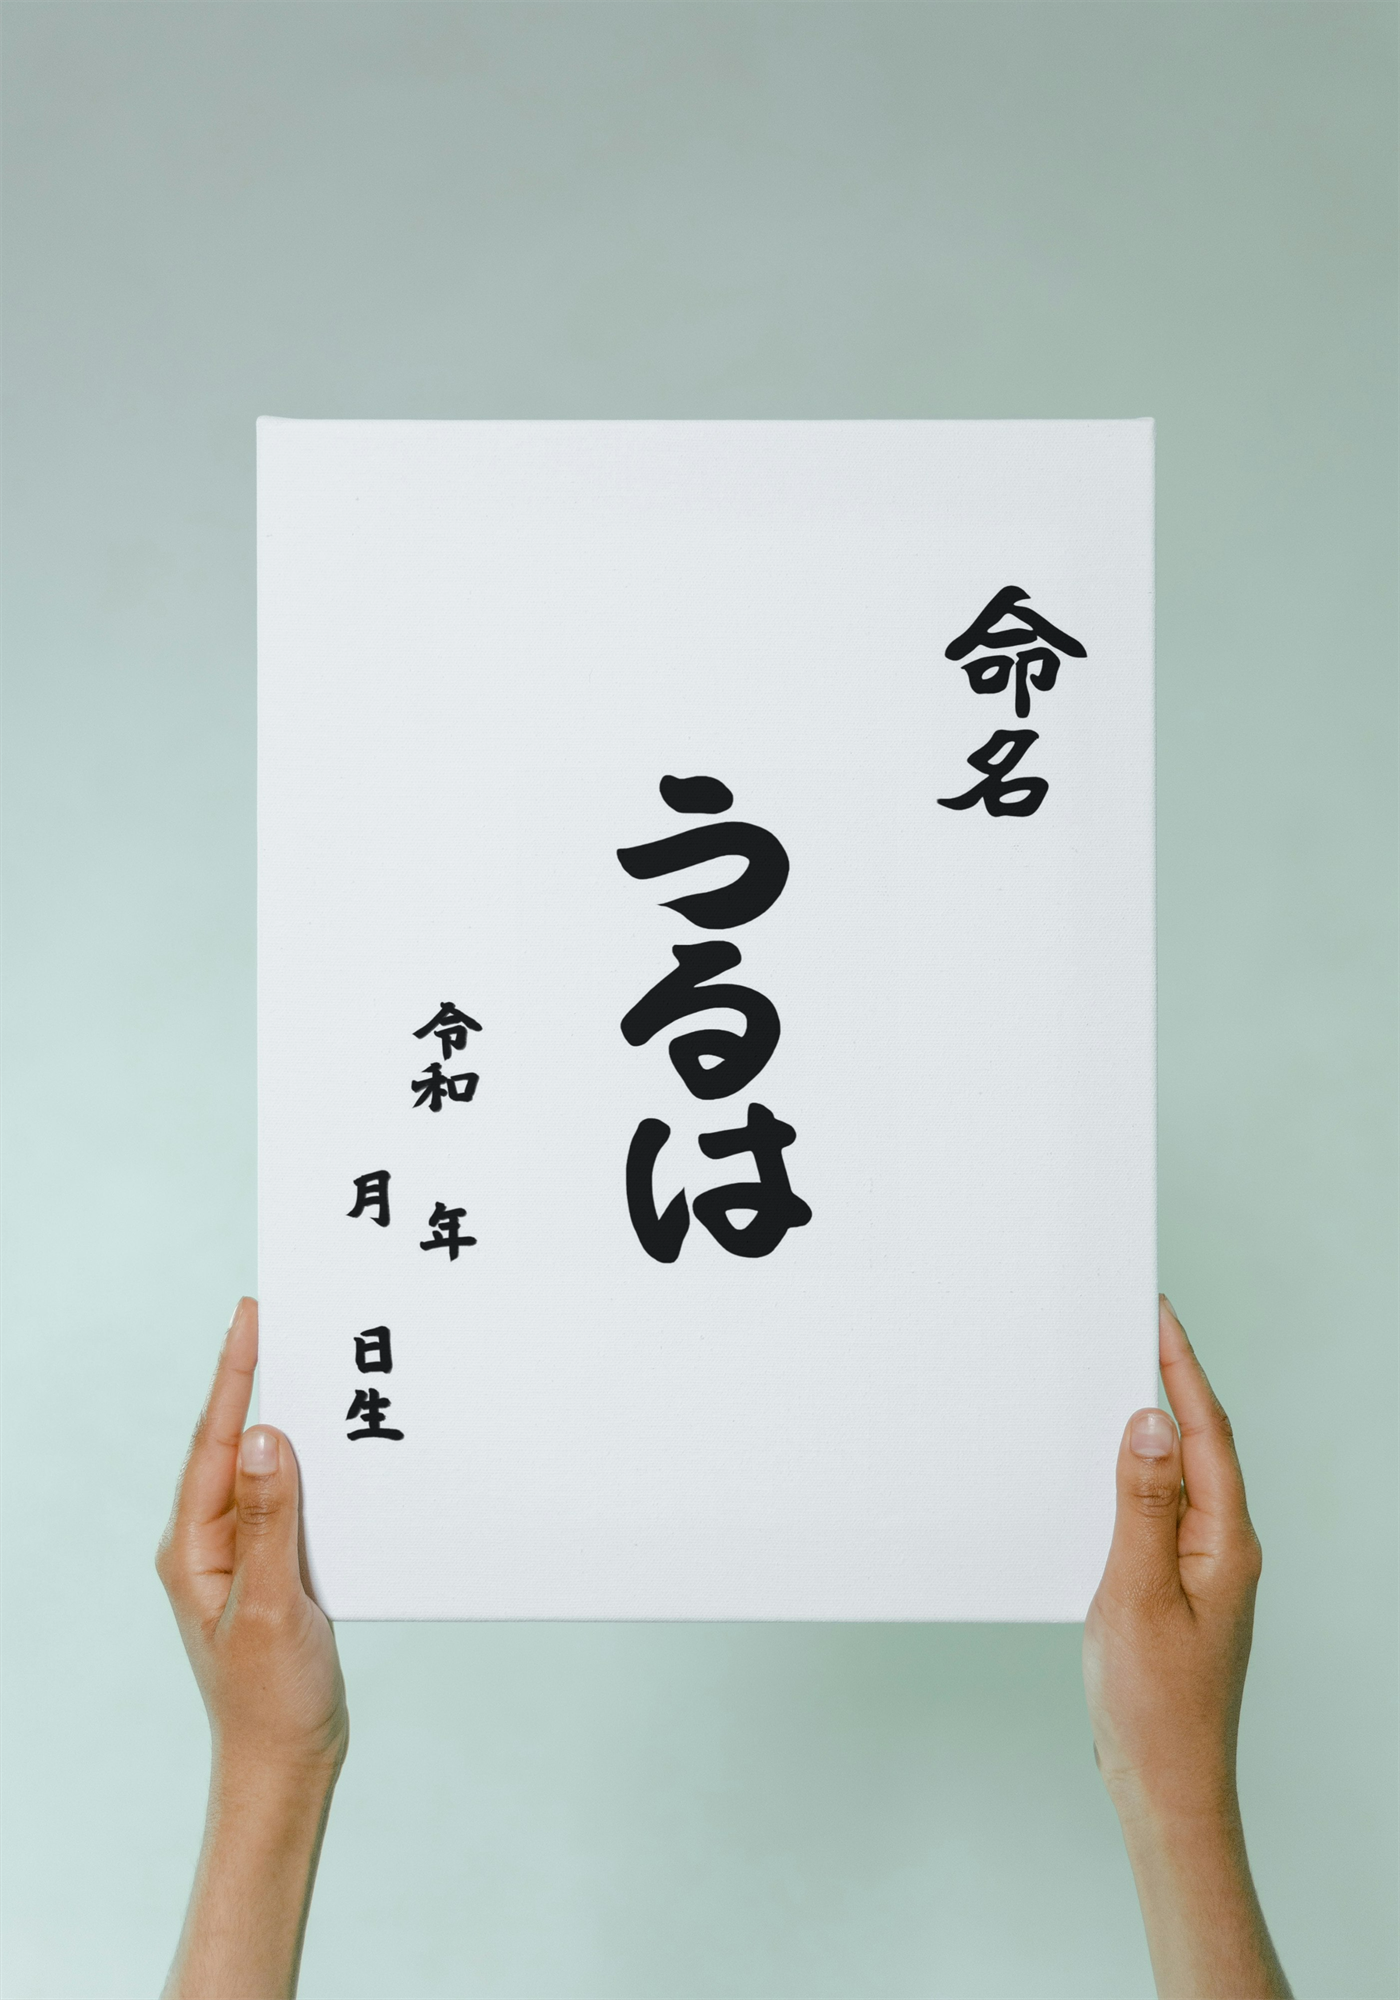 命名
うるは
令和　年
月　日生